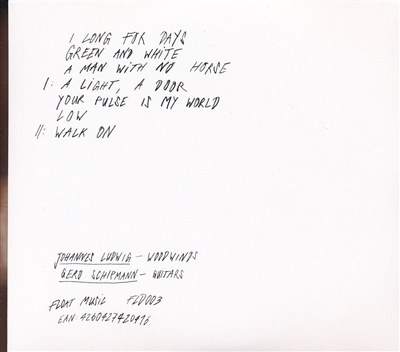 I LONG FOR DAYS
GREEN AND WHITE
A MAN WITH NO HORSE
I: A LIGHT, A DOOR
YOUR PULSE IS MY WORLD
LOW
II: WALK ON
JOHANNES LUDWIG – WOODWINDS
GERO SCHIPMANN – GUITARS
FLOAT MUSIC FLD003
EAN: 4260427420416